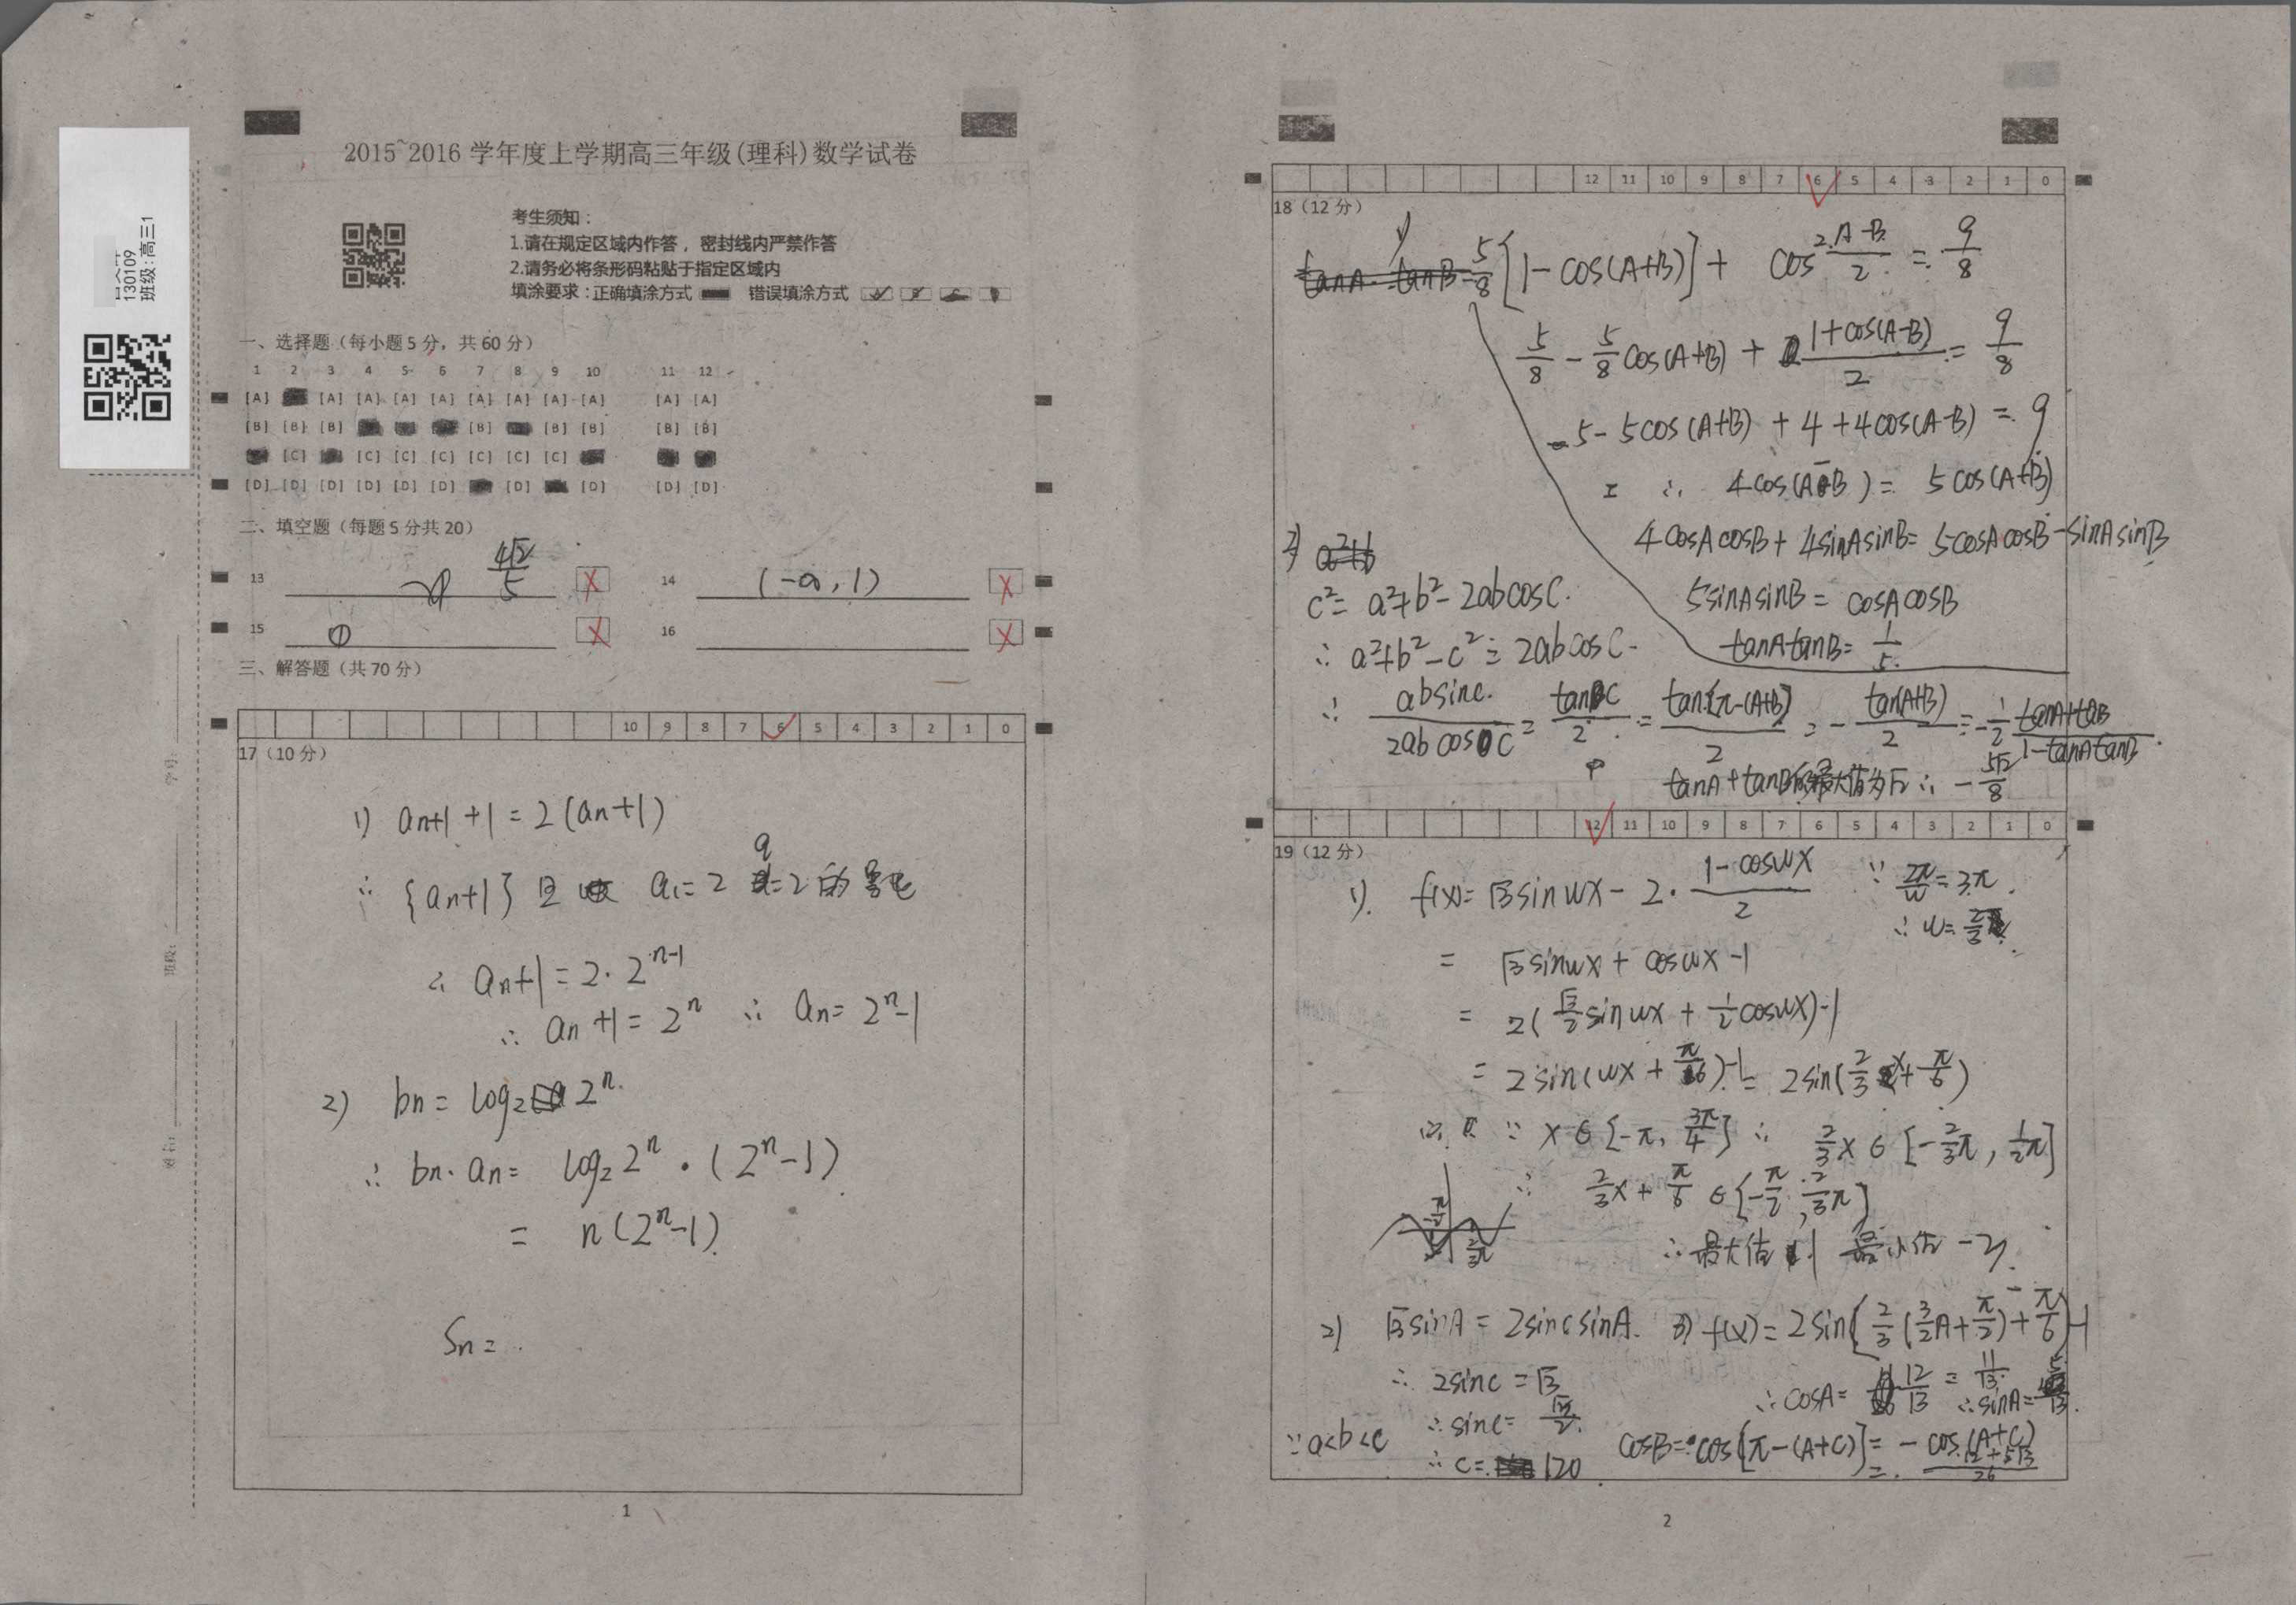 2015~2016 学年度上学期高三年级(理科)数学试卷
130109
班级:高三1
考生须知:
1.请在规定区域内作答，密封线内严禁作答
2.请务必将条形码粘贴于指定区域内
填涂要求:正确填涂方式 错误填涂方式
一、选择题(每小题5分，共60分)
1 2 3 4 5 6 7 8 9 10 11 12
[A] [A] [A] [A] [A] [A] [A] [A] [A] [A] [A]
[B] [B] [B] [B] [B] [B] [B] [B]
[C] [C] [C] [C] [C] [C] [C]
[D] [D] [D] [D] [D] [D] [D] [D] [D] [D]
二、填空题(每题5分共20)
13 4√2/5 14 (-∞,1)
15 ① 16
三、解答题(共70分)
10 9 8 7 6 5 4 3 2 1 0
17(10分)
1) an+1 +1 = 2(an+1)
∴ {an+1} a1=2 q=2 的
∴ an+1 = 2·2^(n-1)
∴ an+1 = 2^n ∴ an = 2^n-1
2) bn = log2 2^n
∴ bn·an = log2 2^n·(2^n-1)
= n(2^n-1)
Sn =
1
学号:
班级:
姓名:
12 11 10 9 8 7 6 5 4 3 2 1 0
18(12分)
5/8[1-cos(A+B)] + cos²(A-B)/2 = 9/8
5/8 - 5/8cos(A+B) + (1+cos(A-B))/2 = 9/8
5-5cos(A+B)+4+4cos(A-B) = 9
∴ 4cos(A-B) = 5cos(A+B)
4cosAcosB+4sinAsinB=5cosAcosB-sinAsinB
5sinAsinB = cosAcosB
tanAtanB = 1/5
2)
c²= a²+b²-2abcosC.
∴ a²+b²-c² = 2abcosC
∴ absinc/2abcosC = tanC/2 = tan[π-(A+B)]/2 = -tan(A+B)/2 = -1/2 tanA+tanB/1-tanAtanB
tanA+tanB的最大值为√2 ∴ -5√2/8
12 11 10 9 8 7 6 5 4 3 2 1 0
19(12分)
1). f(x)=√3sinwx-2·(1-coswx)/2 ∵ 2π/w=3π.
∴ w=2/3
= √3sinwx+coswx-1
= 2(√3/2sinwx+1/2coswx)-1
= 2sin(wx+π/6)-1= 2sin(2/3x+π/6)
∵ x∈[-π, 3π/4] ∴ 2/3x∈[-2/3π, 1/2π]
∴ 2/3x+π/6∈[-π/2, 2/3π]
∴ 最大值 1 最小值 -3
2) √3sinA = 2sincsinA. 3) f(x)=2sin[2/3(3/2A+π/2)+π/6]-1
∴ 2sinc=√3 ∴cosA= 12/13 = 11/13 ∴sinA=5/13.
∴sinc=√3/2
∵a<b<c ∴c= 120 cosB=cos[π-(A+C)]= -cos(A+C)
= 12+5√3/26
2